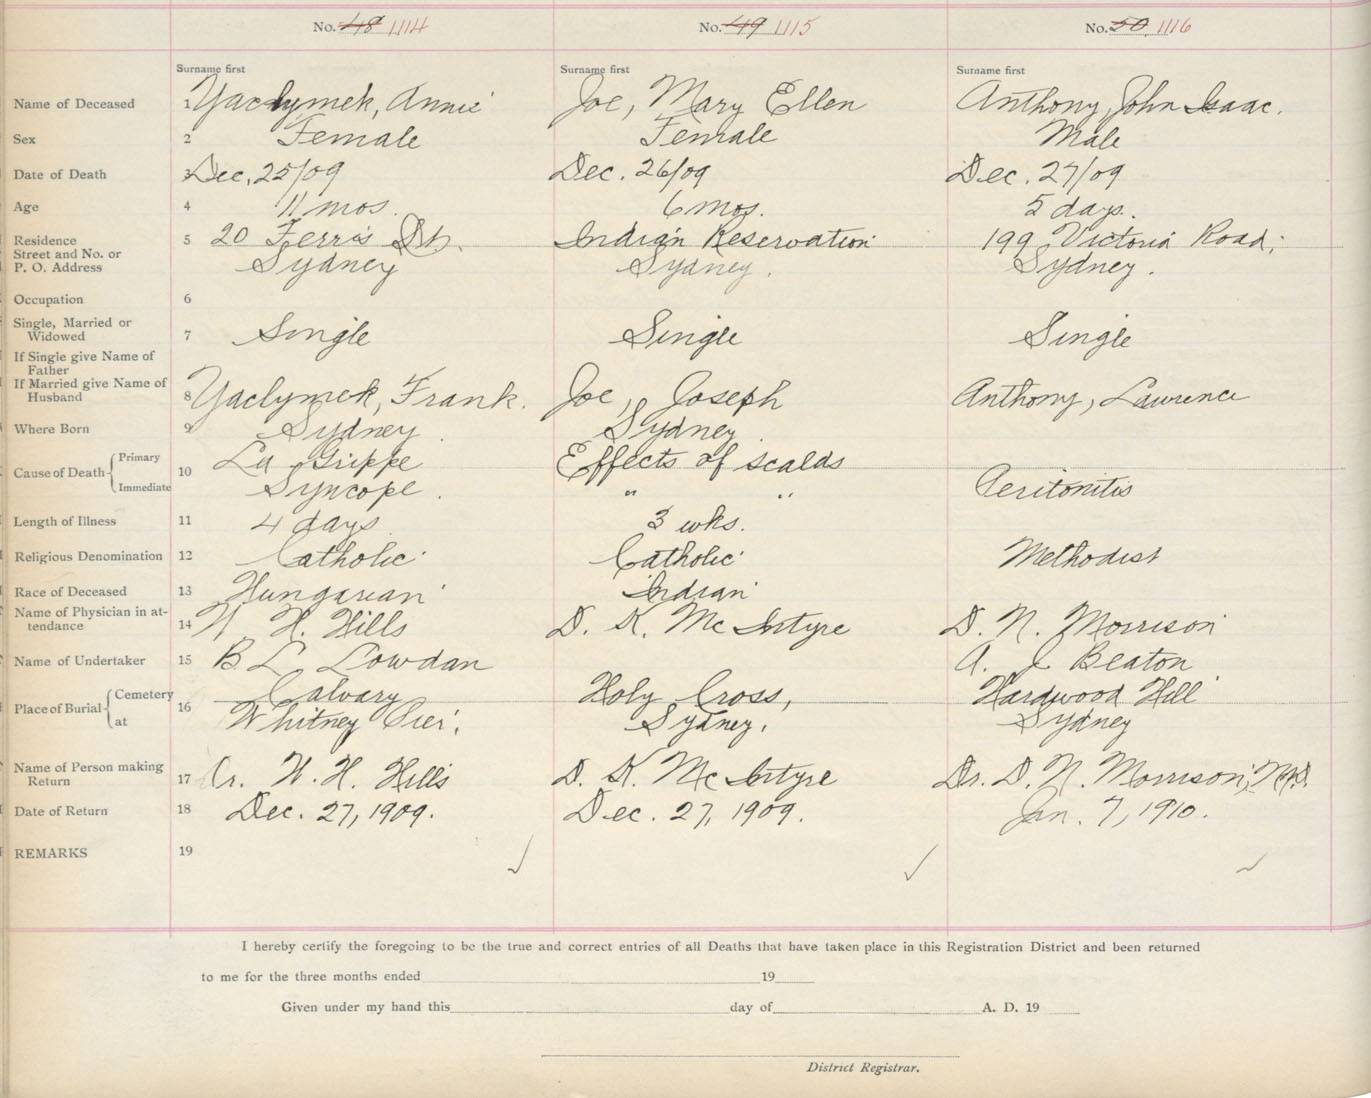 No. 48 1114 No. 49 1115 No. 50 1116
Surname first Surname first Surname first
Name of Deceased 1 Yaclymek, Annie Joe, Mary Ellen Anthony, John Isaac.
Sex 2 Female Female Male
Date of Death 3 Dec. 25/09 Dec. 26/09 Dec. 27/09
Age 4 11 mos. 6 mos. 5 days.
Residence 5 20 Ferris St. Indian Reservation 199 Victoria Road,
Street and No. or
P. O. Address Sydney Sydney. Sydney.
Occupation 6
Single, Married or
Widowed 7 Single Single Single
If Single give Name of
Father
If Married give Name of
Husband 8 Yaclymek, Frank. Joe, Joseph Anthony, Laurence
Where Born 9 Sydney. Sydney.
Cause of Death Primary 10 La Grippe Effects of scalds
Immediate Syncope. " " Peritonitis
Length of Illness 11 4 days 3 wks.
Religious Denomination 12 Catholic Catholic Methodist
Race of Deceased 13 Hungarian Indian
Name of Physician in at-
tendance 14 W. H. Hills D. K. McIntyre D. N. Morrison
Name of Undertaker 15 B. L. Lowdan A. J. Beaton
Place of Burial Cemetery 16 Calvary Holy Cross, Hardwood Hill
at Whitney Pier. Sydney. Sydney
Name of Person making
Return 17 Dr. W. H. Hills D. K. McIntyre Dr. D. N. Morrison, M.D.
Date of Return 18 Dec. 27, 1909. Dec. 27, 1909. Jan. 7, 1910.
REMARKS 19
I hereby certify the foregoing to be the true and correct entries of all Deaths that have taken place in this Registration District and been returned
to me for the three months ended 19
Given under my hand this day of A. D. 19
District Registrar.